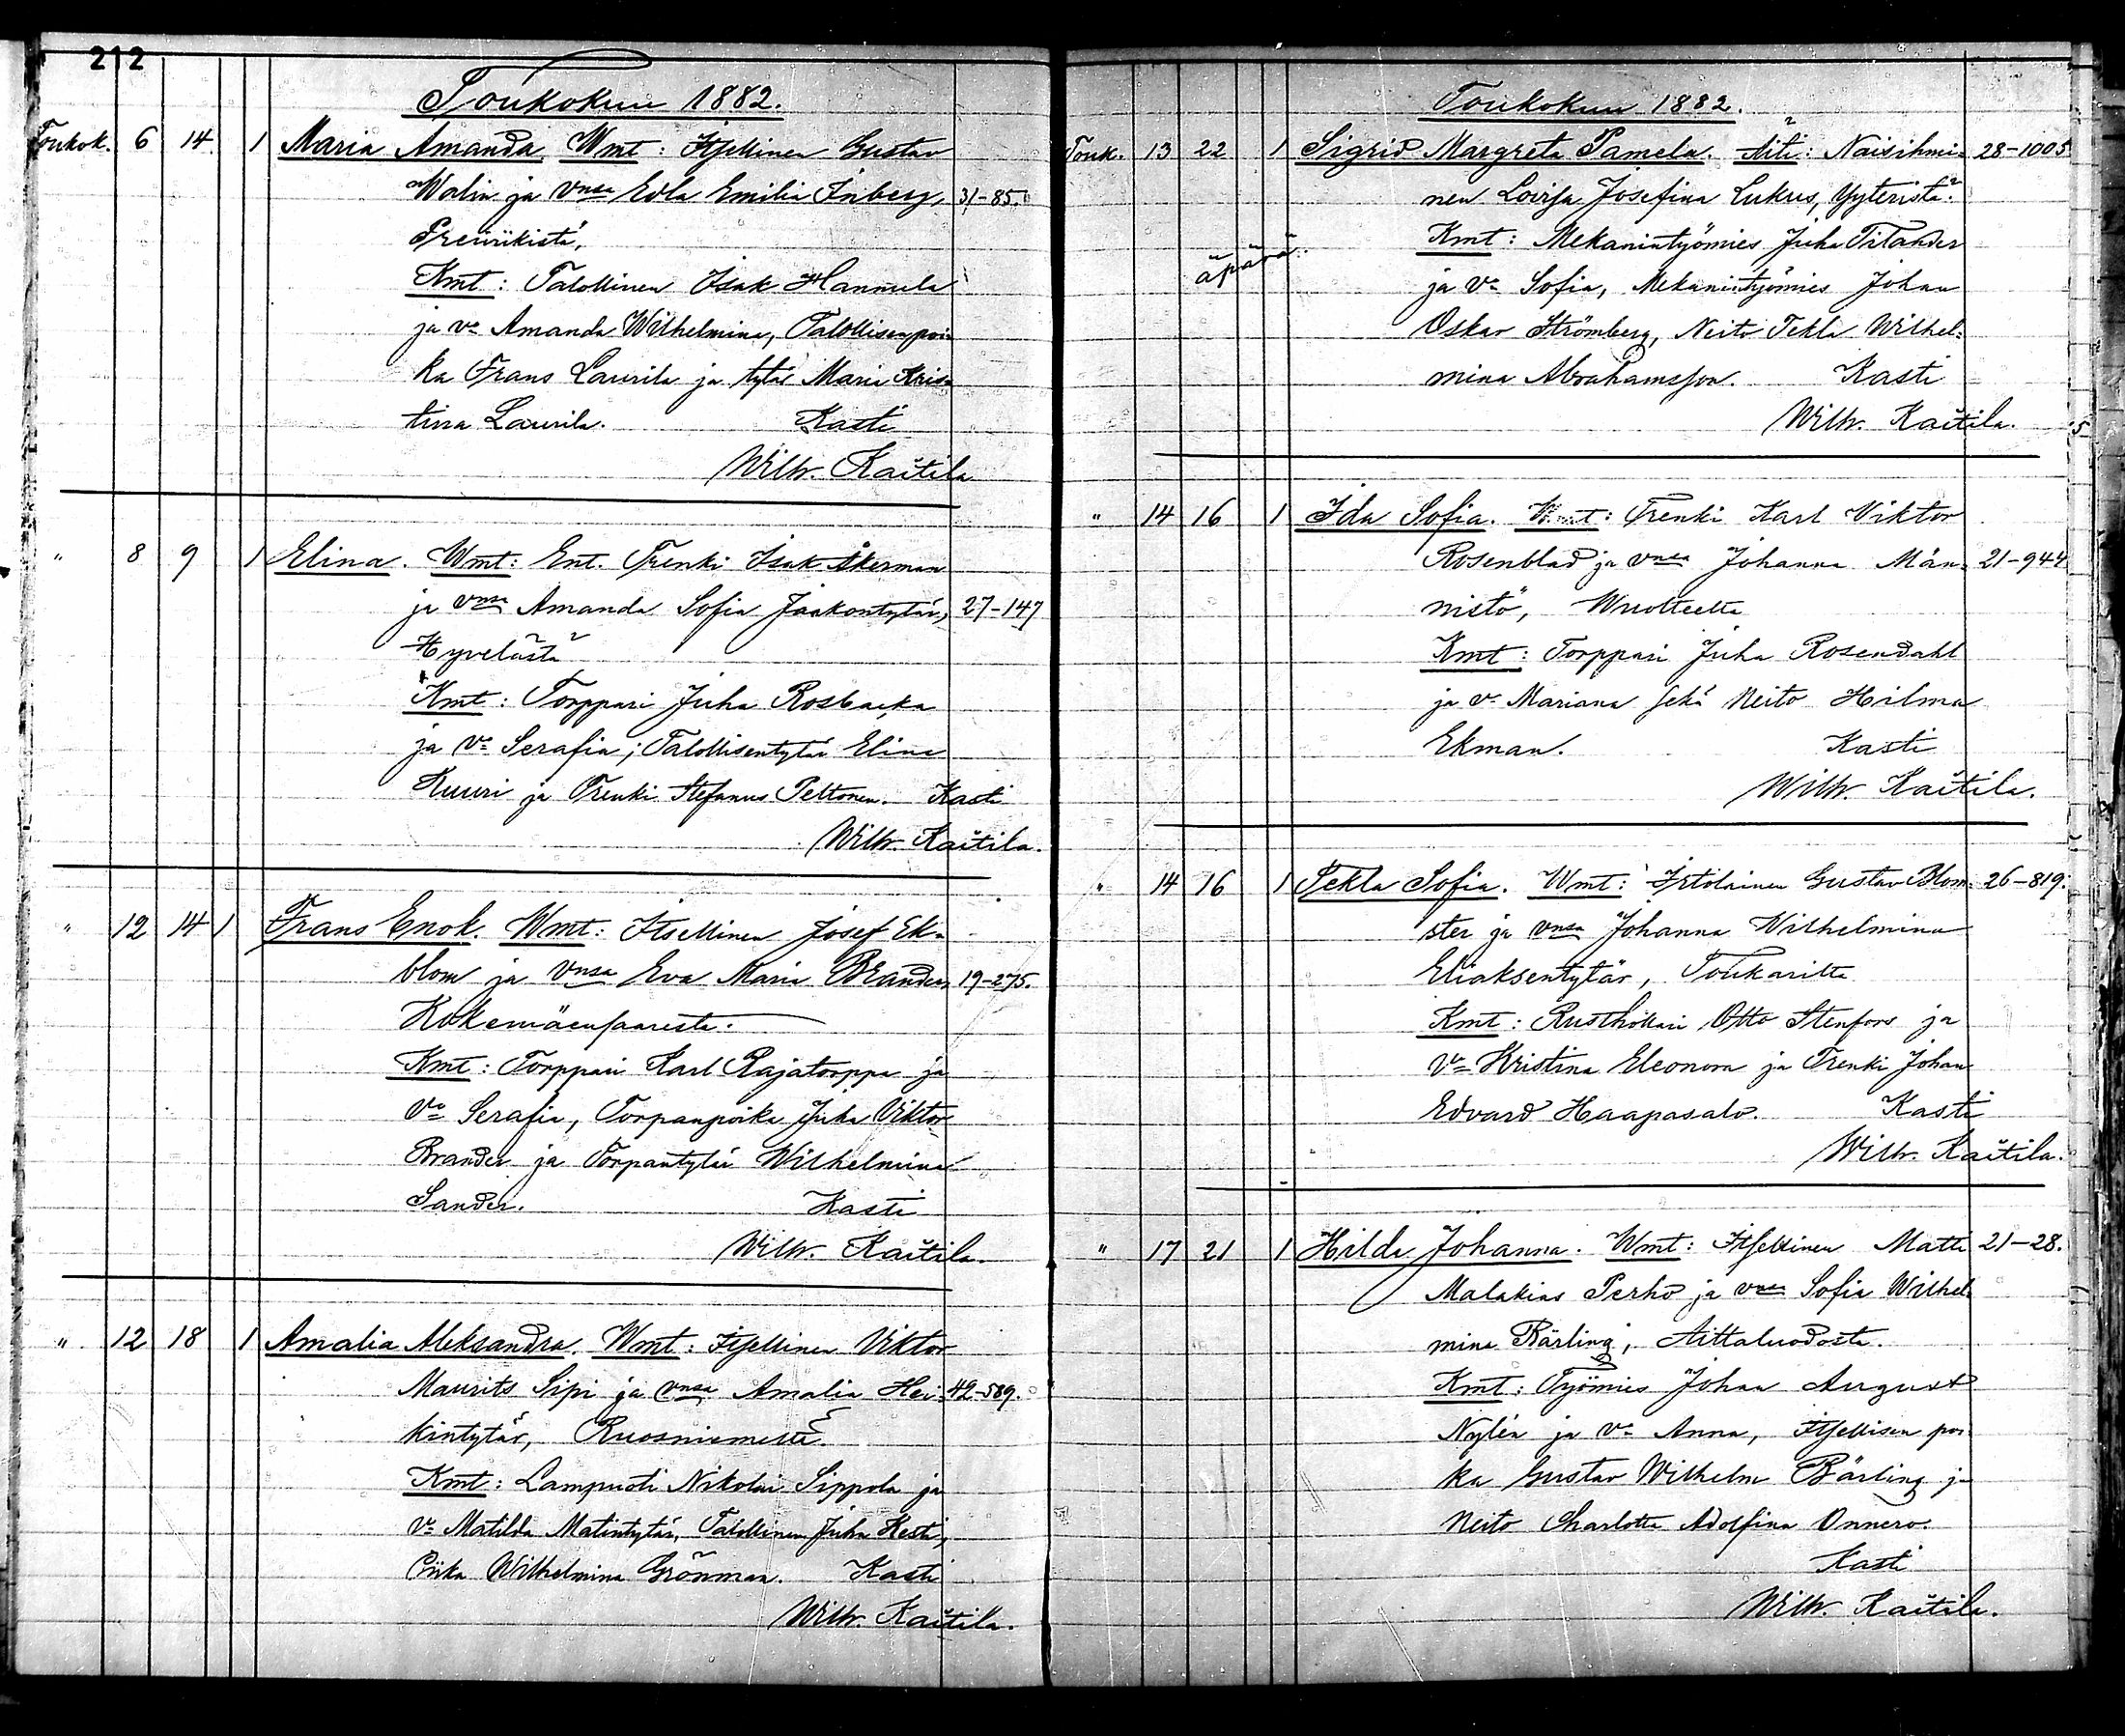 212
Toukokuu 1882.
Toukok. 6 14. 1 Maria Amanda. Wmt: Itsellinen Gustav
Walin ja vnsa Edla Emilia Inberg, 31-85.
Preiviikistä,
Kmt: Talollinen Isak Hannula
ja v- Amanda Wilhelmina, Talollisenpoi-
ka Frans Laurila ja tytär Maria Kris-
tina Laurila. Kasti
Wilh. Kaitila
" 8 9 1 Elina. Wmt: Ent. Trenki Isak Åkerman
ja vnsa Amanda Sofia Jaakontytär, 27-147
Hyvelästä
Kmt: Torppari Juha Rosbacka
ja v- Serafia; Talollisentytär Elina
Kuuri ja Trenki Stefanus Peltonen. Kasti
Wilh. Kaitila.
" 12 14 1 Frans Enok. Wmt: Itsellinen Josef Ek-
blom ja vnsa Eva Maria Brander, 19-275.
Kokemäensaaresta.
Kmt: Torppari Karl Rajatorppa ja
v- Serafia, Torpanpoika Juha Viktor
Brander ja Torpantytär Wilhelmina
Sander. Kasti
Wilh. Kaitila.
" 12 18 1 Amalia Aleksandra. Wmt: Itsellinen Viktor
Maurits Sipi ja vnsa Amalia Hei- 42-589.
kintytär, Ruosniemeltä.
Kmt: Lampuoti Nikolai Sippola ja
v- Matilda Matintytär, Talollinen Juha Kesti,
Piika Wilhelmina Grönman. Kasti
Wilh. Kaitila.
Toukokuu 1882.
Touk. 13 22 1 Sigrid Margreta Pamela. Äiti: Naisihmi- 28-1005
nen Lovisa Josefina Lukus, Yyteristä.
Kmt: Mekanintyömies Juha Titander
äpärä.
ja v- Sofia, Mekanintyömies Johan
Oskar Strömberg, Neito Tekla Wilhel-
mina Abrahamsson. Kasti
Wilh. Kaitila.
" 14 16 1 Ida Sofia. Wmt: Trenki Karl Viktor
Rosenblad ja vnsa Johanna Män- 21-944
nistö, Wuolteelta
Kmt: Torppari Juha Rosendahl
ja v- Mariana sekä Neito Hilma
Ekman. Kasti
Wilh. Kaitila.
" 14 16 1 Tekla Sofia. Wmt: Irtolainen Gustav Blom- 26-819.
ster ja vnsa Johanna Wilhelmina
Eliaksentytär, Toukarilta
Kmt: Rusthollari Otto Stenfors ja
v- Kristina Eleonora ja Trenki Johan
Edvard Haapasalo. Kasti
Wilh. Kaitila.
" 17 21 1 Hilda Johanna. Wmt: Itsellinen Matti 21-28.
Malakias Perho ja vnsa Sofia Wilhel-
mina Bärling, Aittaluodosta.
Kmt: Työmies Johan August
Nylén ja v- Anna, Itsellisen poi-
ka Gustav Wilhelm Bärling ja
Neito Charlotta Adolfina Onnero.
Kasti
Wilh. Kaitila.